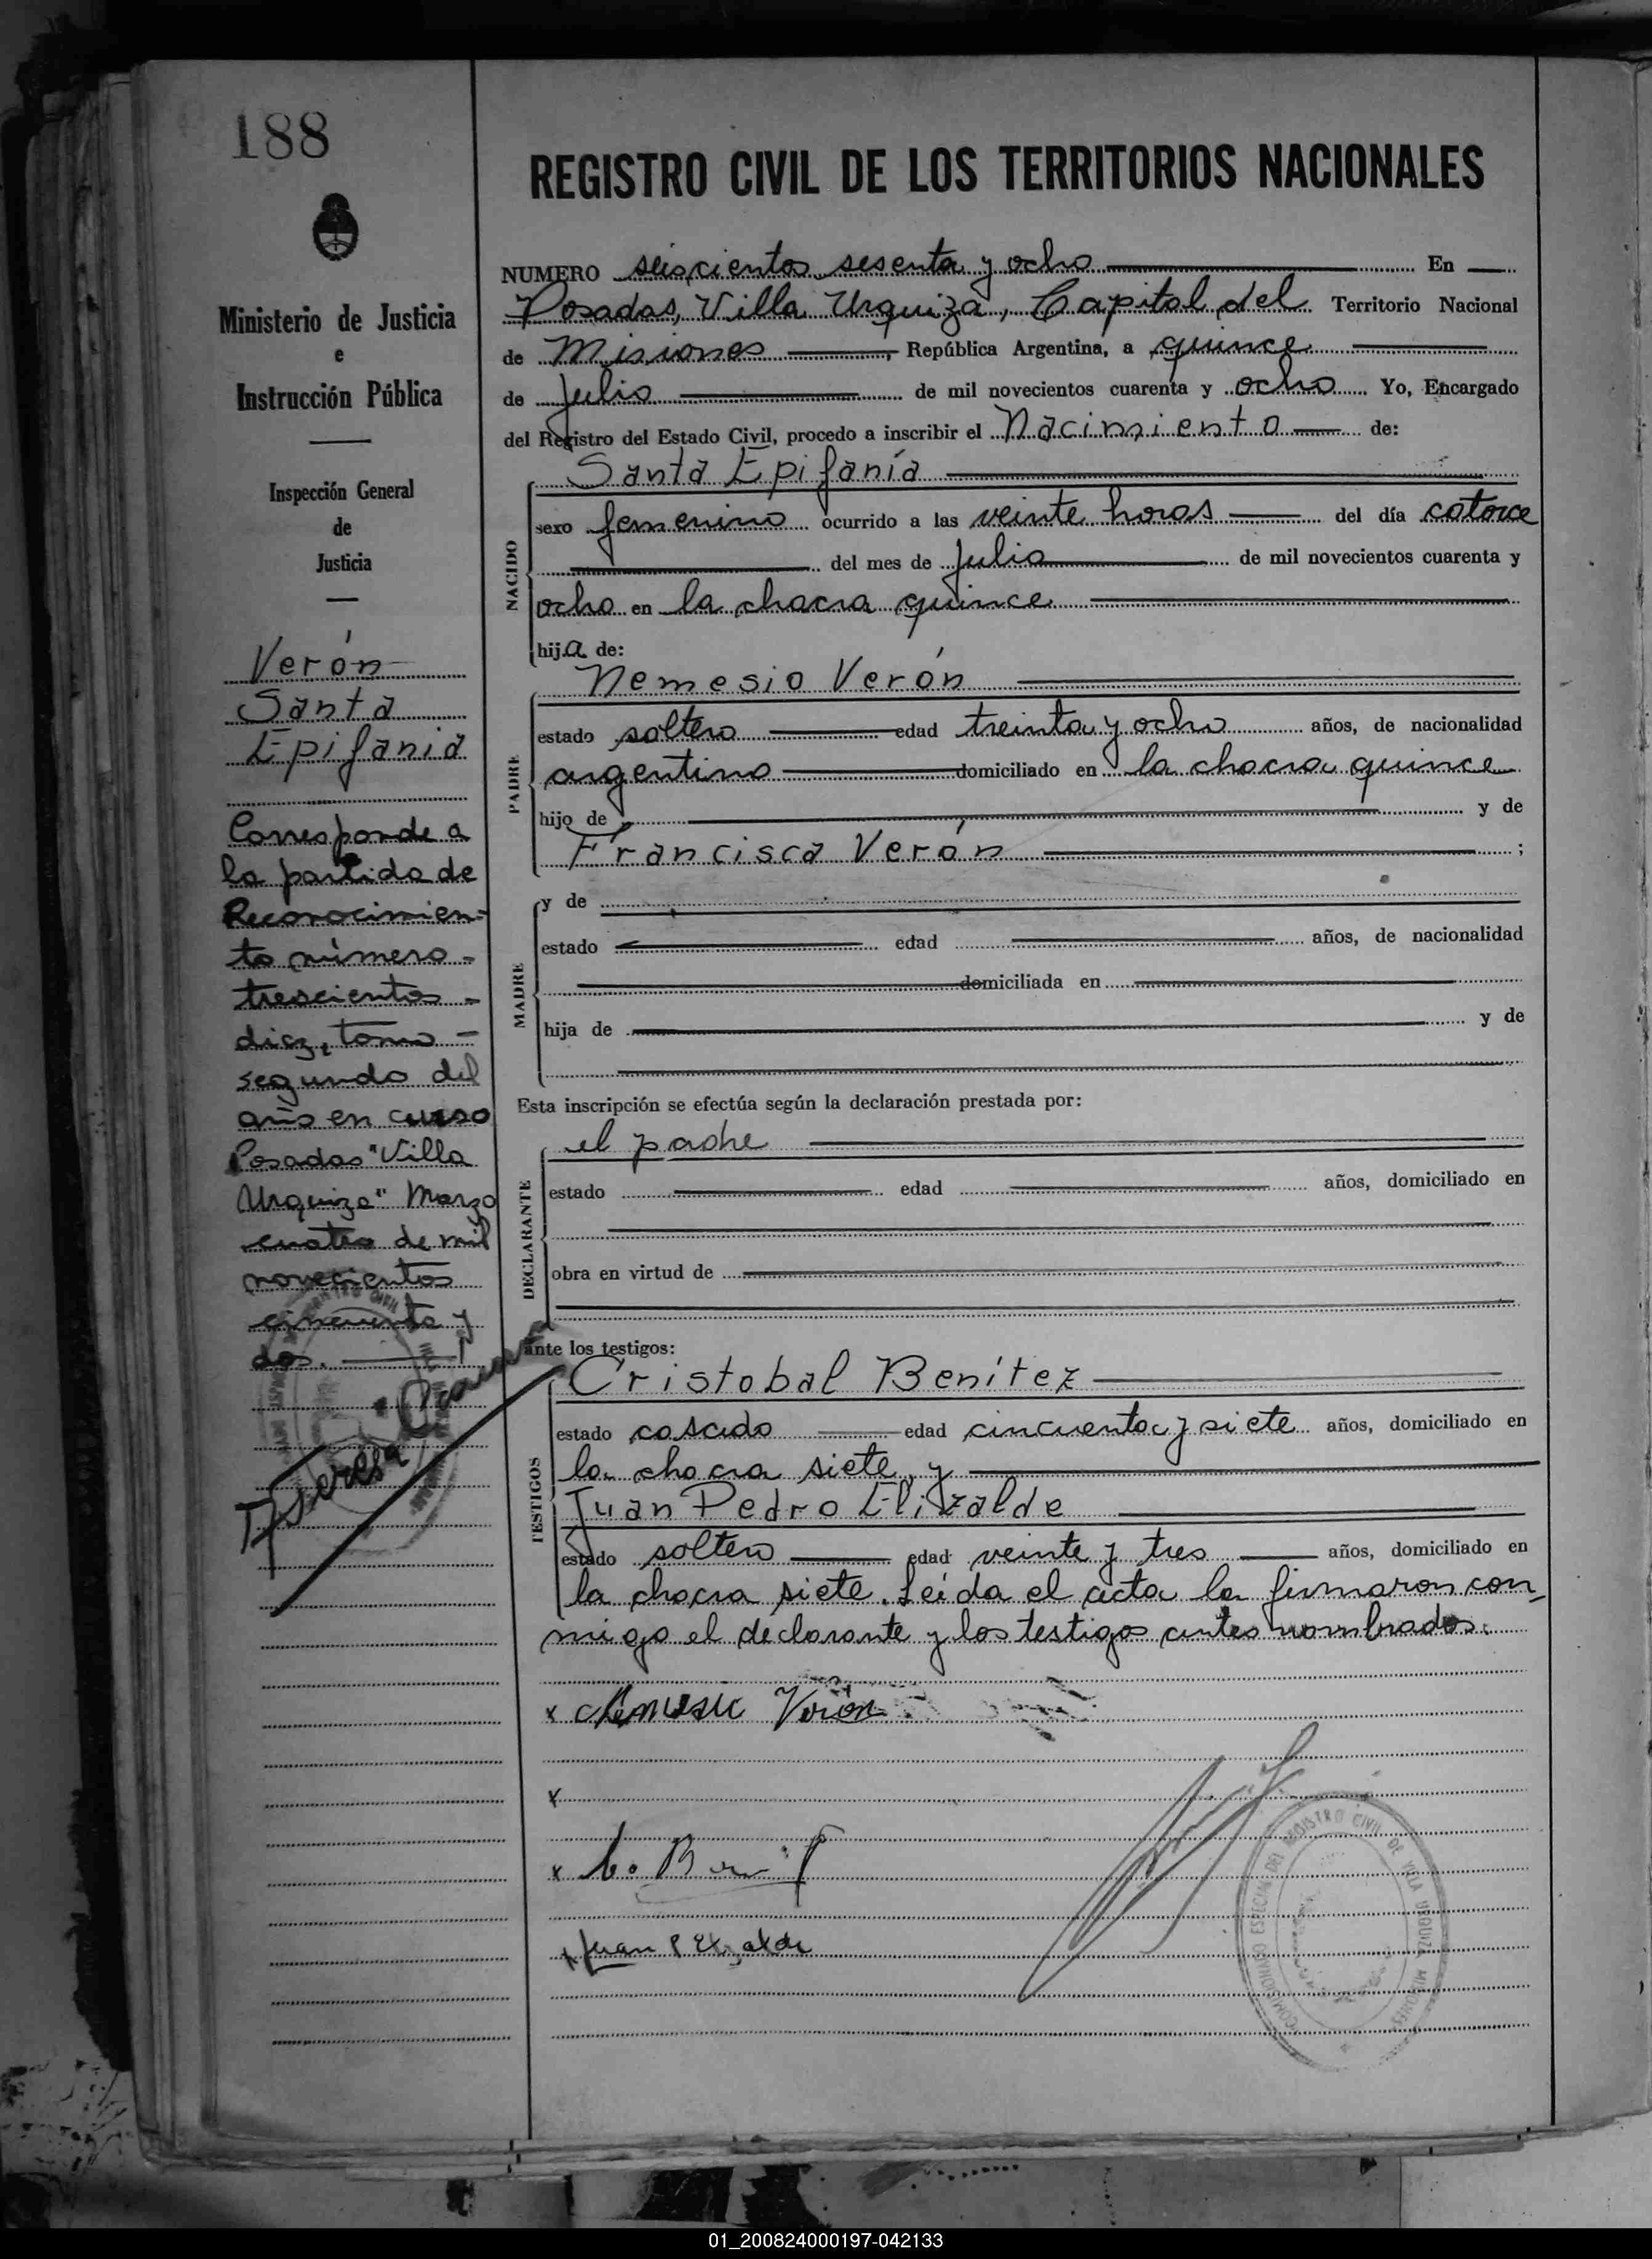 188
Ministerio de Justicia
e
Instrucción Pública
Inspección General
de
Justicia
Verón
Santa
Epifania
Corresponde a
la partida de
Reconocimien-
to número -
trescientos -
diez, tomo -
segundo del
año en curso
Posadas "Villa
Urquiza" Marzo
cuatro de mil
novecientos
cincuenta y
dos.
REGISTRO CIVIL DE LOS TERRITORIOS NACIONALES
NUMERO seiscientos sesenta y ocho En
Posadas, Villa Urquiza, Capital del Territorio Nacional
de Misiones, República Argentina, a quince
de Julio de mil novecientos cuarenta y ocho Yo, Encargado
del Registro del Estado Civil, procedo a inscribir el Nacimiento de:
NACIDO
Santa Epifanía
sexo femenino ocurrido a las veinte horas del día catorce
del mes de Julio de mil novecientos cuarenta y
ocho en la chacra quince
hija de:
PADRE
Nemesio Verón
estado soltero edad treinta y ocho años, de nacionalidad
argentino domiciliado en la chacra quince
hijo de y de
Francisca Verón ;
MADRE
y de
estado edad años, de nacionalidad
domiciliada en
hija de y de
Esta inscripción se efectúa según la declaración prestada por:
DECLARANTE
el padre
estado edad años, domiciliado en
obra en virtud de
ante los testigos:
TESTIGOS
Cristobal Benítez
estado casado edad cincuenta y siete años, domiciliado en
la chacra siete, y
Juan Pedro Elizalde
estado soltero edad veinte y tres años, domiciliado en
la chacra siete. Leída el acta la firmaron con-
migo el declarante y los testigos antes nombrados.
x Nemesio Verón
x
x
x Juan P Elizalde
REGISTRO CIVIL DE VILLA URQUIZA MISIONES
01_200824000197-042133